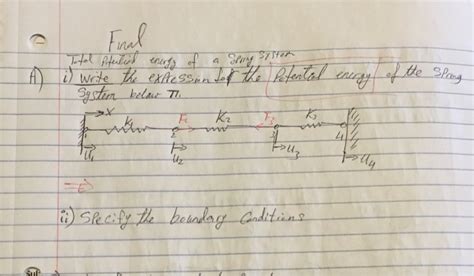 Final
Total Potential energy of a Spring System
A) i) write the expression for the Potential energy of the spring
System below π.
→x K1 F2 K2 F3 K3
1 2 3 4
u1 u2 u3 u4
ii) Specify the boundary Conditions